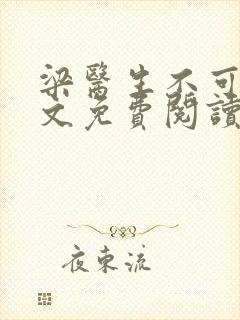 梁醫生不可
文免費閱讀
夜東流